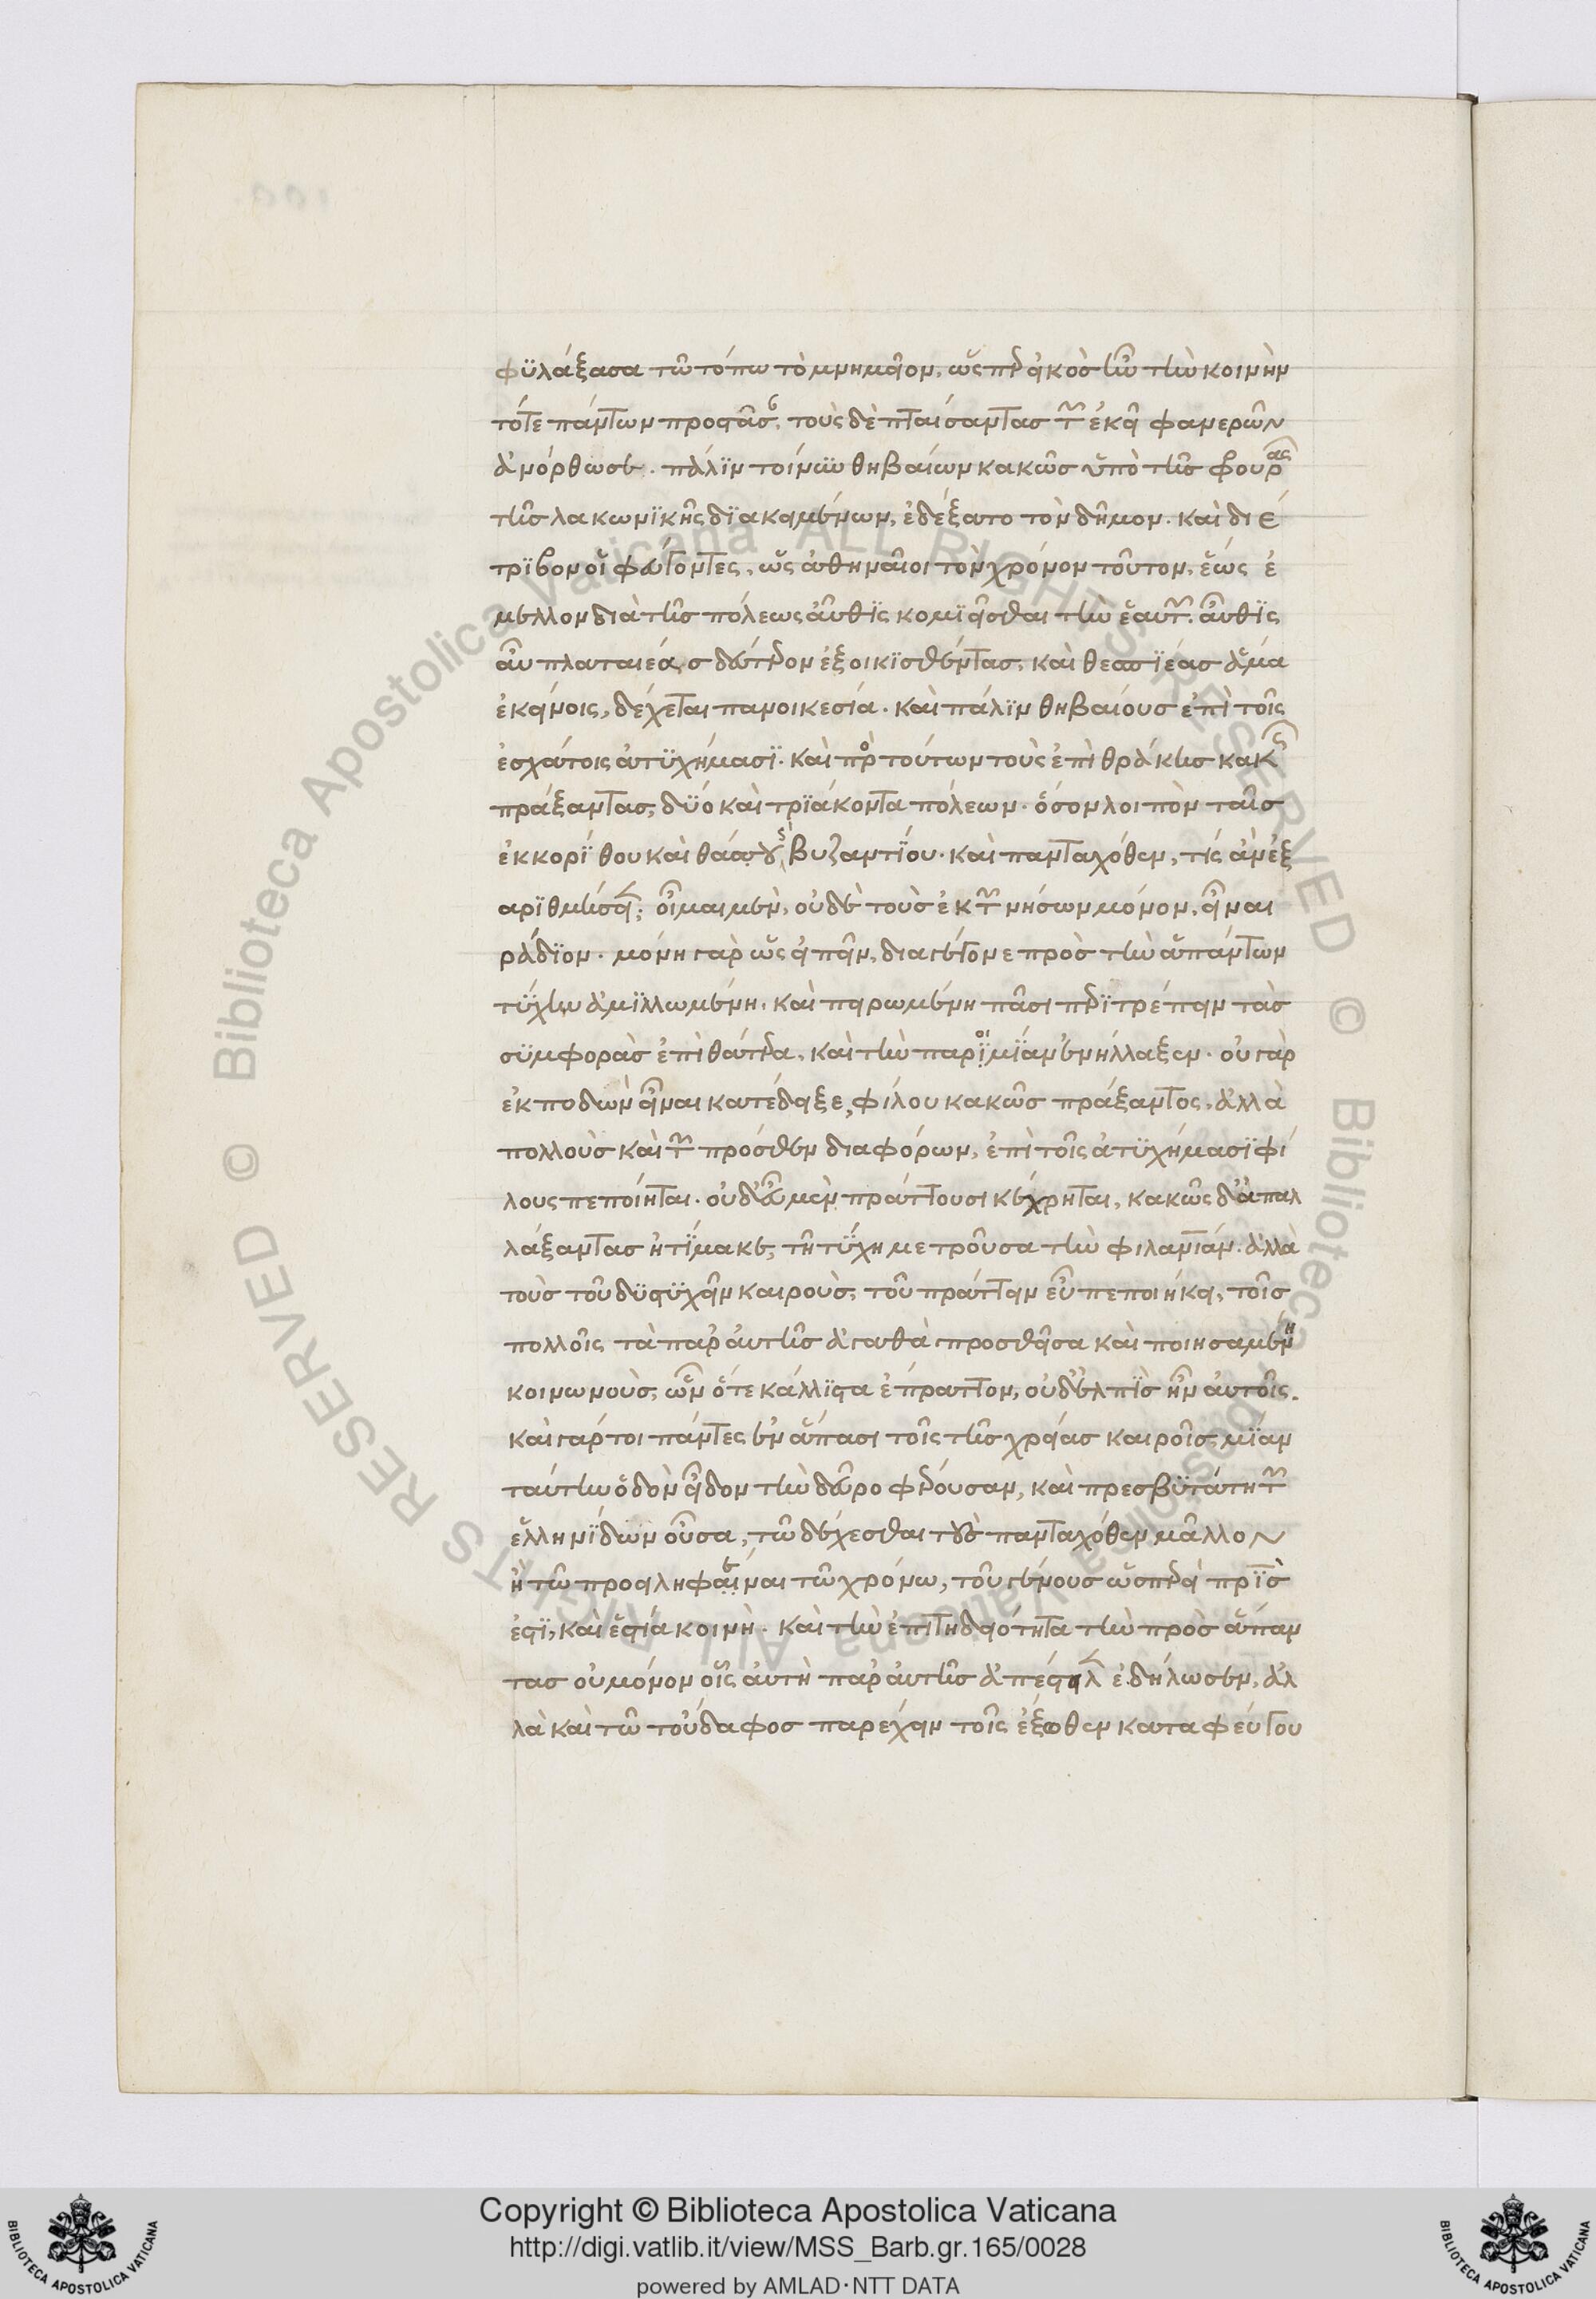 φϋλάξασα τῶ τόπω τὸ μνημεῖον, ὥσπερ εἰκὸς ἦν τὴν κοινὴν
τότε πάντων προστᾶσαν. τοὺς δὲ πταίσαντας τῶν ἐκεῖ φανερῶν
ἀνόρθωσε. πάλϊν τοίνϋν θηβαίων κακῶς ὑπὸ τῆς φρουρᾶς
τῆς λακωνϊκῆς δϊακειμένων, ἐδέξατο τὸν δῆμον. καὶ διέ
τρϊβον οἱ φεύγοντες, ὡς ἀθηναῖοι τὸν χρόνον τοῦτον, ἕως ἔ
μελλον διὰ τῆς πόλεως αὖθϊς κομϊεῖσθαι τὴν ἑαυτῶν. αὖθϊς
αὖ πλαταιέας δεύτερον ἐξοικϊσθέντας, καὶ θεασϊέας ἅμα
ἐκείνοις, δέχεται πανοικεσία. καὶ πάλϊν θηβαίους ἐπὶ τοῖς
ἐσχάτοις ἀτϋχήμασϊ. καὶ πρὸ τούτων τοὺς ἐπὶ θράκης κακῶς
πράξαντας, δϋό καὶ τρϊάκοντα πόλεων. ὅσον λοιπὸν ταῖς
ἐκ κορίνθου καὶ θάσου, βυζαντΐου. καὶ πανταχόθεν, τίς ἂν ἐξ
αρϊθμήσειε; οἶμαι μὲν, οὐδὲ τοὺς ἐκ τῶν νήσων μόνον, εἶναι
ράδϊον. μόνη γὰρ ὡς εἰπεῖν, διαγέγονε πρὸς τὴν ἁπάντων
τϋχην ἁμϊλλωμένη. καὶ πειρωμένη πᾶσι περϊτρέπειν τὰς
σϋμφορὰς ἐπὶ θάτερα, καὶ τὴν παροιμϊαν ἐνήλλαξεν. οὐ γὰρ
ἐκποδὼν εἶναι κατέδειξε, φίλου κακῶς πράξαντος, ἀλλὰ
πολλοὺς καὶ τῶν πρόσθεν διαφόρων, ἐπὶ τοῖς ἀτϋχήμασϊ φί
λους πεποίηται. οὐδ' εὖ μὲν πράττουσι κέχρηται, κακῶς δ' ἀπαλ
λάξαντας ἠτΐμακε, τῆ τΰχη μετροῦσα τὴν φιλανίαν. ἀλλὰ
τοὺς τοῦ δϋστϋχεῖν καιροὺς, τοῦ πράττειν εὖ πεποιήκει, τοῖς
πολλοῖς τὰ παρ' αὐτῆς ἀγαθὰ προσθεῖσα καὶ ποιησαμένη
κοινωνοὺς, ὧν ὅτε κάλλϊστα ἔπραττον, οὐδ' ἐλπϊς ἦν αὐτοῖς.
καὶ γάρτοι πάντες ἐν ἅπασι τοῖς τῆς χρείας καιροῖς, μϊαν
ταύτην ὁδὸν εἶδον τὴν δεῦρο φέρουσαν, καὶ πρεσβϋτάτη τῶν
ἑλληνϊδων οὖσα, τῶ δέχεσθαι τοὺς πανταχόθεν μᾶλλον
ἢ τῶ προειληφέναι τῶ χρόνω, τοῦ γένους ὥσπερεὶ πατρϊς
ἐστϊ, καὶ ἑστία κοινὴ. καὶ τὴν ἐπιτηδειότητα τὴν πρὸς ἅπαν
τας οὐ μόνον οἷς αὐτὴ παρ' αὐτῆς ἀπέστειλεν ἐδήλωσεν, ἀλ
λὰ καὶ τῶ τοὔδαφος παρέχειν τοῖς ἔξωθεν καταφεύγου
Copyright © Biblioteca Apostolica Vaticana
http://digi.vatlib.it/view/MSS_Barb.gr.165/0028
powered by AMLAD·NTT DATA